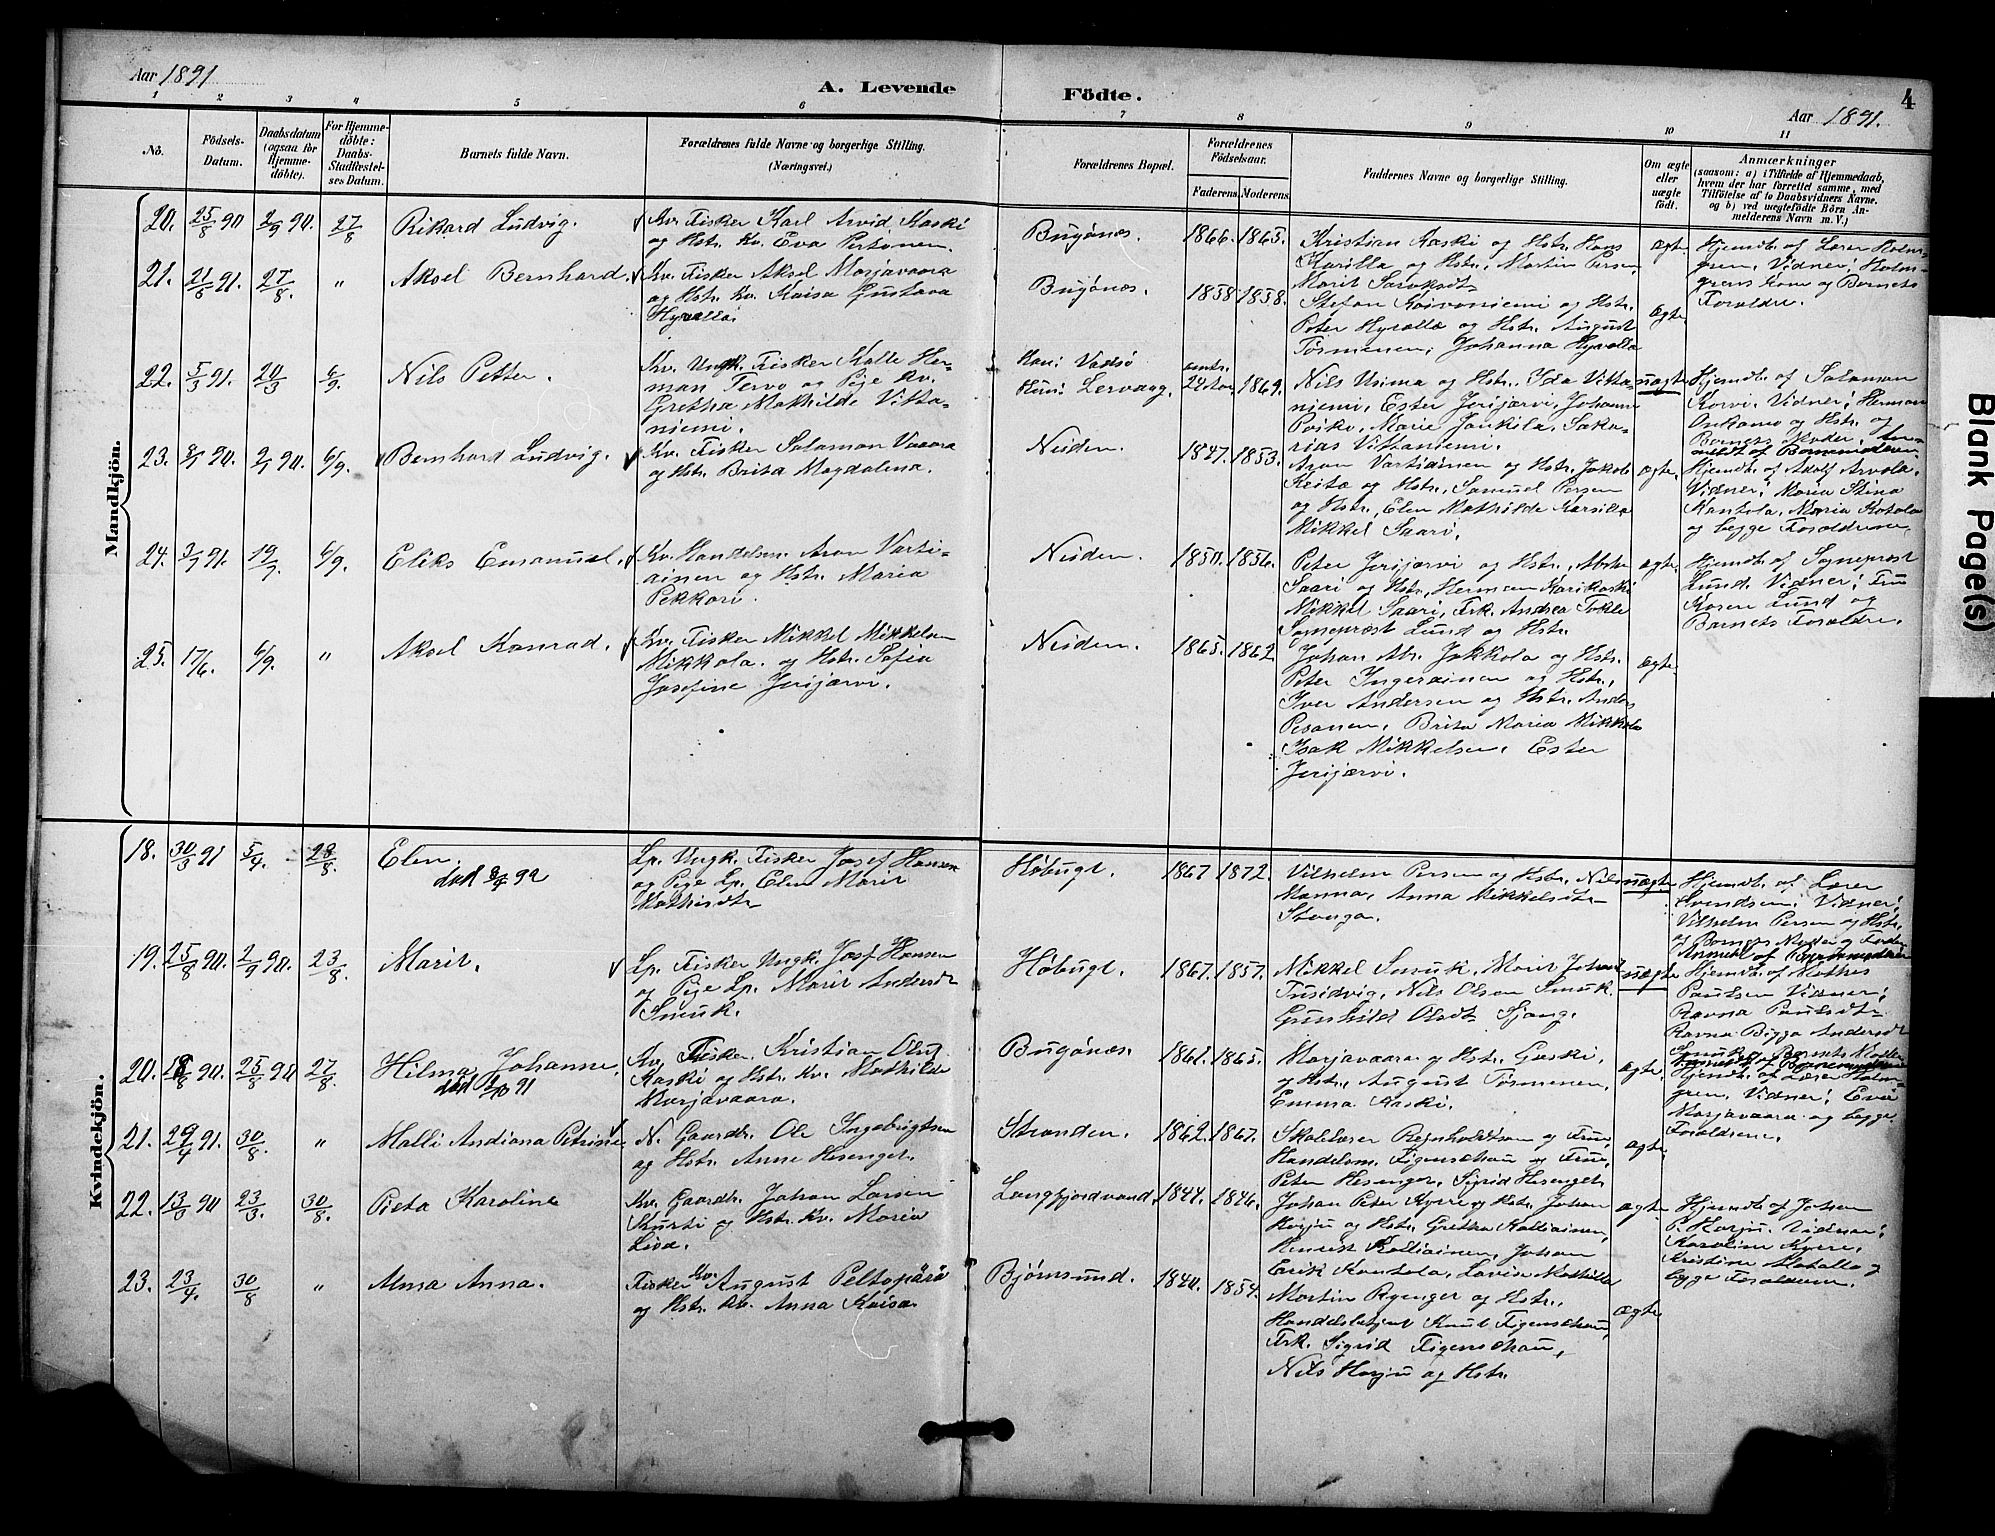 Aar 1891
A. Levende Födte.
4
Aar 1891.
1 2 3 4 5 6 7 8 9 10 11
No.
Födsels-
Datum.
Daabsdatum
(ogsaa for
Hjemme-
döbte).
For Hjemme-
döbte:
Daabs-
Stadfæstel-
ses Datum.
Barnets fulde Navn.
Forældrenes fulde Navne og borgerlige Stilling.
(Næringsvei.)
Forældrenes Bopæl.
Forældrenes
Födselsaar.
Faderens. Moderens.
Faddernes Navne og borgerlige Stilling.
Om ægte
eller
uægte
födt.
Anmærkninger
(saasom: a) i Tilfælde af Hjemmedaab,
hvem der har forrettet samme, med
Tilföielse af to Daabsvidners Navne,
og b) ved uægtefödte Börn An-
melderens Navn m. V.)
Mandkjön.
20. 25/8 90 2/9 90. 27/8
Rikard Ludvig.
Kv. Fisker Karl Arvid Kaski
og Hstr. Kv. Eva Pertonen.
Bugönes. 1866. 1863.
Kristian Kaski og Hstr. Hans
Karilla og Hstr., Martin Persen,
Marit
ægte.
Hjemdt. af Lærer Holm-
gren, Vidner: Holm-
grens Kone og Barnets
Foraldre.
21. 21/6 91. 27/8. "
Aksel Bernhard.
Kv. Fisker Aksel Marjavaara
og Hstr. Kv. Kaisa Gustava
Hyrallä.
Bugönes. 1858 1858.
Stefan Koivaniemi og Hstr.
Peter Hyrallæ og Hstr. August
Tormenen, Johanna Hyrallæ
ægte.
22. 5/3 91. 20/3 6/9.
Nils Petter.
Kv. Ungk. Fisker Kalle Her-
man Tervo og Pige Kv.
Gretha Mathilde Vitta-
niemi.
Han: Vadsö
Hun: Lervaag.
omtr.
1869.
Nils Usima og Hstr. Ida Vitta-
niemi, Ester Jerijærvi, Johann
Poiko, Maria Jonkila, Saka-
rias Vittaniemi.
uægte
Hjemdt. af Salamon
Korvi. Vidner: Herman
Onkamo og Hstr. og
Barnets Moder. An-
meldt af Barnemoderen.
23. 90. 2/1 90. 6/9.
Bernhard Ludvig.
Kv. Fisker Salamon Vaara
og Hstr. Brita Magdalena.
Neiden. 1847. 1853.
Aron Vartiainen og Hstr. Jakob
Keitæ og Hstr., Samuel Persen
og Hstr., Elen Mathilde Karsika
Mikkel Saari.
ægte.
Hjemdt. af Adolf Arvola.
Vidner: Maria Stina
Kantola, Maria Kotala
og begge Foraldrene.
24. 3/7 91. 19/7. 6/9.
Eliks Emanuel.
Kv. Handelsm. Aron Varti-
ainen og Hstr. Maria
Pekkari.
Neiden. 1850. 1856.
Peter Jerijærvi og Hstr.,
Saari og Hstr., Herman Karikoski
Mikkel Saari, Frk. Andrea Tokle
Sogneprest Lund og Hstr.
ægte.
Hjemdt. af Sogneprest
Lund. Vidner: Fru
Kosen Lund og
Barnets Foraldre.
25. 17/6. 6/9. "
Aksel Konrad.
Kv. Fisker Mikkel Mikkelsen
Mikkola. og Hstr. Sofia
Josefine Jerijærvi.
Neiden. 1865. 1862
Johan Ab. Jokkola og Hstr.
Peter Ingeræinen og Hstr.,
Iver Andersen og Hstr. Anders
Pesonen, Brita Maria Mikkola
Isak Mikkelsen, Ester
Jerijærvi.
ægte.
Kvindekjön.
18. 30/3 91 5/4. 28/8.
Elen.
död 92
Lp. Ungk. Fisker Josef Hansen
og Pige Lp. Elen Marit
Mathisdtr
Höbugt. 1867 1872.
Vilhelm Persen og Hstr. Nils
Manna, Anna Mikkelsdtr
Stranga.
uægte
Hjemdt. af Lærer
Svendsen. Vidner:
Vilhelm Persen og Hstr.
og Barnets Moder og
Anmeldt af Barnemoderen
19. 25/8 90. 2/9 90. 23/8
Marit.
Lp. Fisker Ungk. Josef Hansen
og Pige Lp. Marit Andersdtr
Smuk.
Höbugt 1867. 1857.
Mikkel Smuk, Marit
Tusidvig, Nils Olsen Smuk.
Gunhild Olsdtr Sjang.
uægte
Hjemdt. af Mathis
Paulsen Vidner:
Ravna Paulsdtr
Ravna Bigga Andersdtr
Smuk, Barnets Moder
20. 90. 25/8 90 27/8
Hilma Johanne.
död 91
Kv. Fisker Kristian Oluf
Kaski og Hstr. Kv. Mathilde
Marjavaara.
Bugönes. 1861. 1865.
Marjavaara og Hstr. Kaski.
og Hstr., August Tormenen,
Emma Kaski.
ægte.
Hjemdt. af Lærer Holm-
gren, Vidner: Eva
Marjavaara og begge
Foraldrene.
21. 91. 30/8 "
Malli Andiana Petrine
N. Gaardb. Ole Ingebrigtsen
og Hstr. Anne Hesenget.
Stranden. 1862. 1867.
Skolelærer Reinholdtsen og Frue,
Handelsm. Figenschau og Frue,
Peter Hesenger, Sigrid Hesenget.
ægte.
22. 13/3 90 23/3. 30/8.
Preta Karoline
Kv. Gaardb. Johan Larsen
Kurti og Hstr. Kv. Maria
Lisa.
Langfjordvand. 1844. 1846.
Johan Peter Kyrre og Hstr. Johan
Harju og Hstr. Gretha Kalliainen,
Henrik Kalliainen, Johan
Erik Kantola, Lovise Mathilla
ægte.
Hjemdt. af Johan
P. Harju. Vidner:
Karoline Kyrre,
Kristine Matalla og
begge Foraldrene.
23. 23/4. 30/8 "
Alma Anna.
Fisker Kv. August Peltopärä
og Hstr. Kv. Anna Kaisa.
Björnsund. 1840. 1854.
Martin Ryenger og Hstr.,
Handelsbetjent Knut Figenschau,
Frk. Sigrid Figenschau,
Nils Harju og Hstr.
ægte
Blank Page(s)